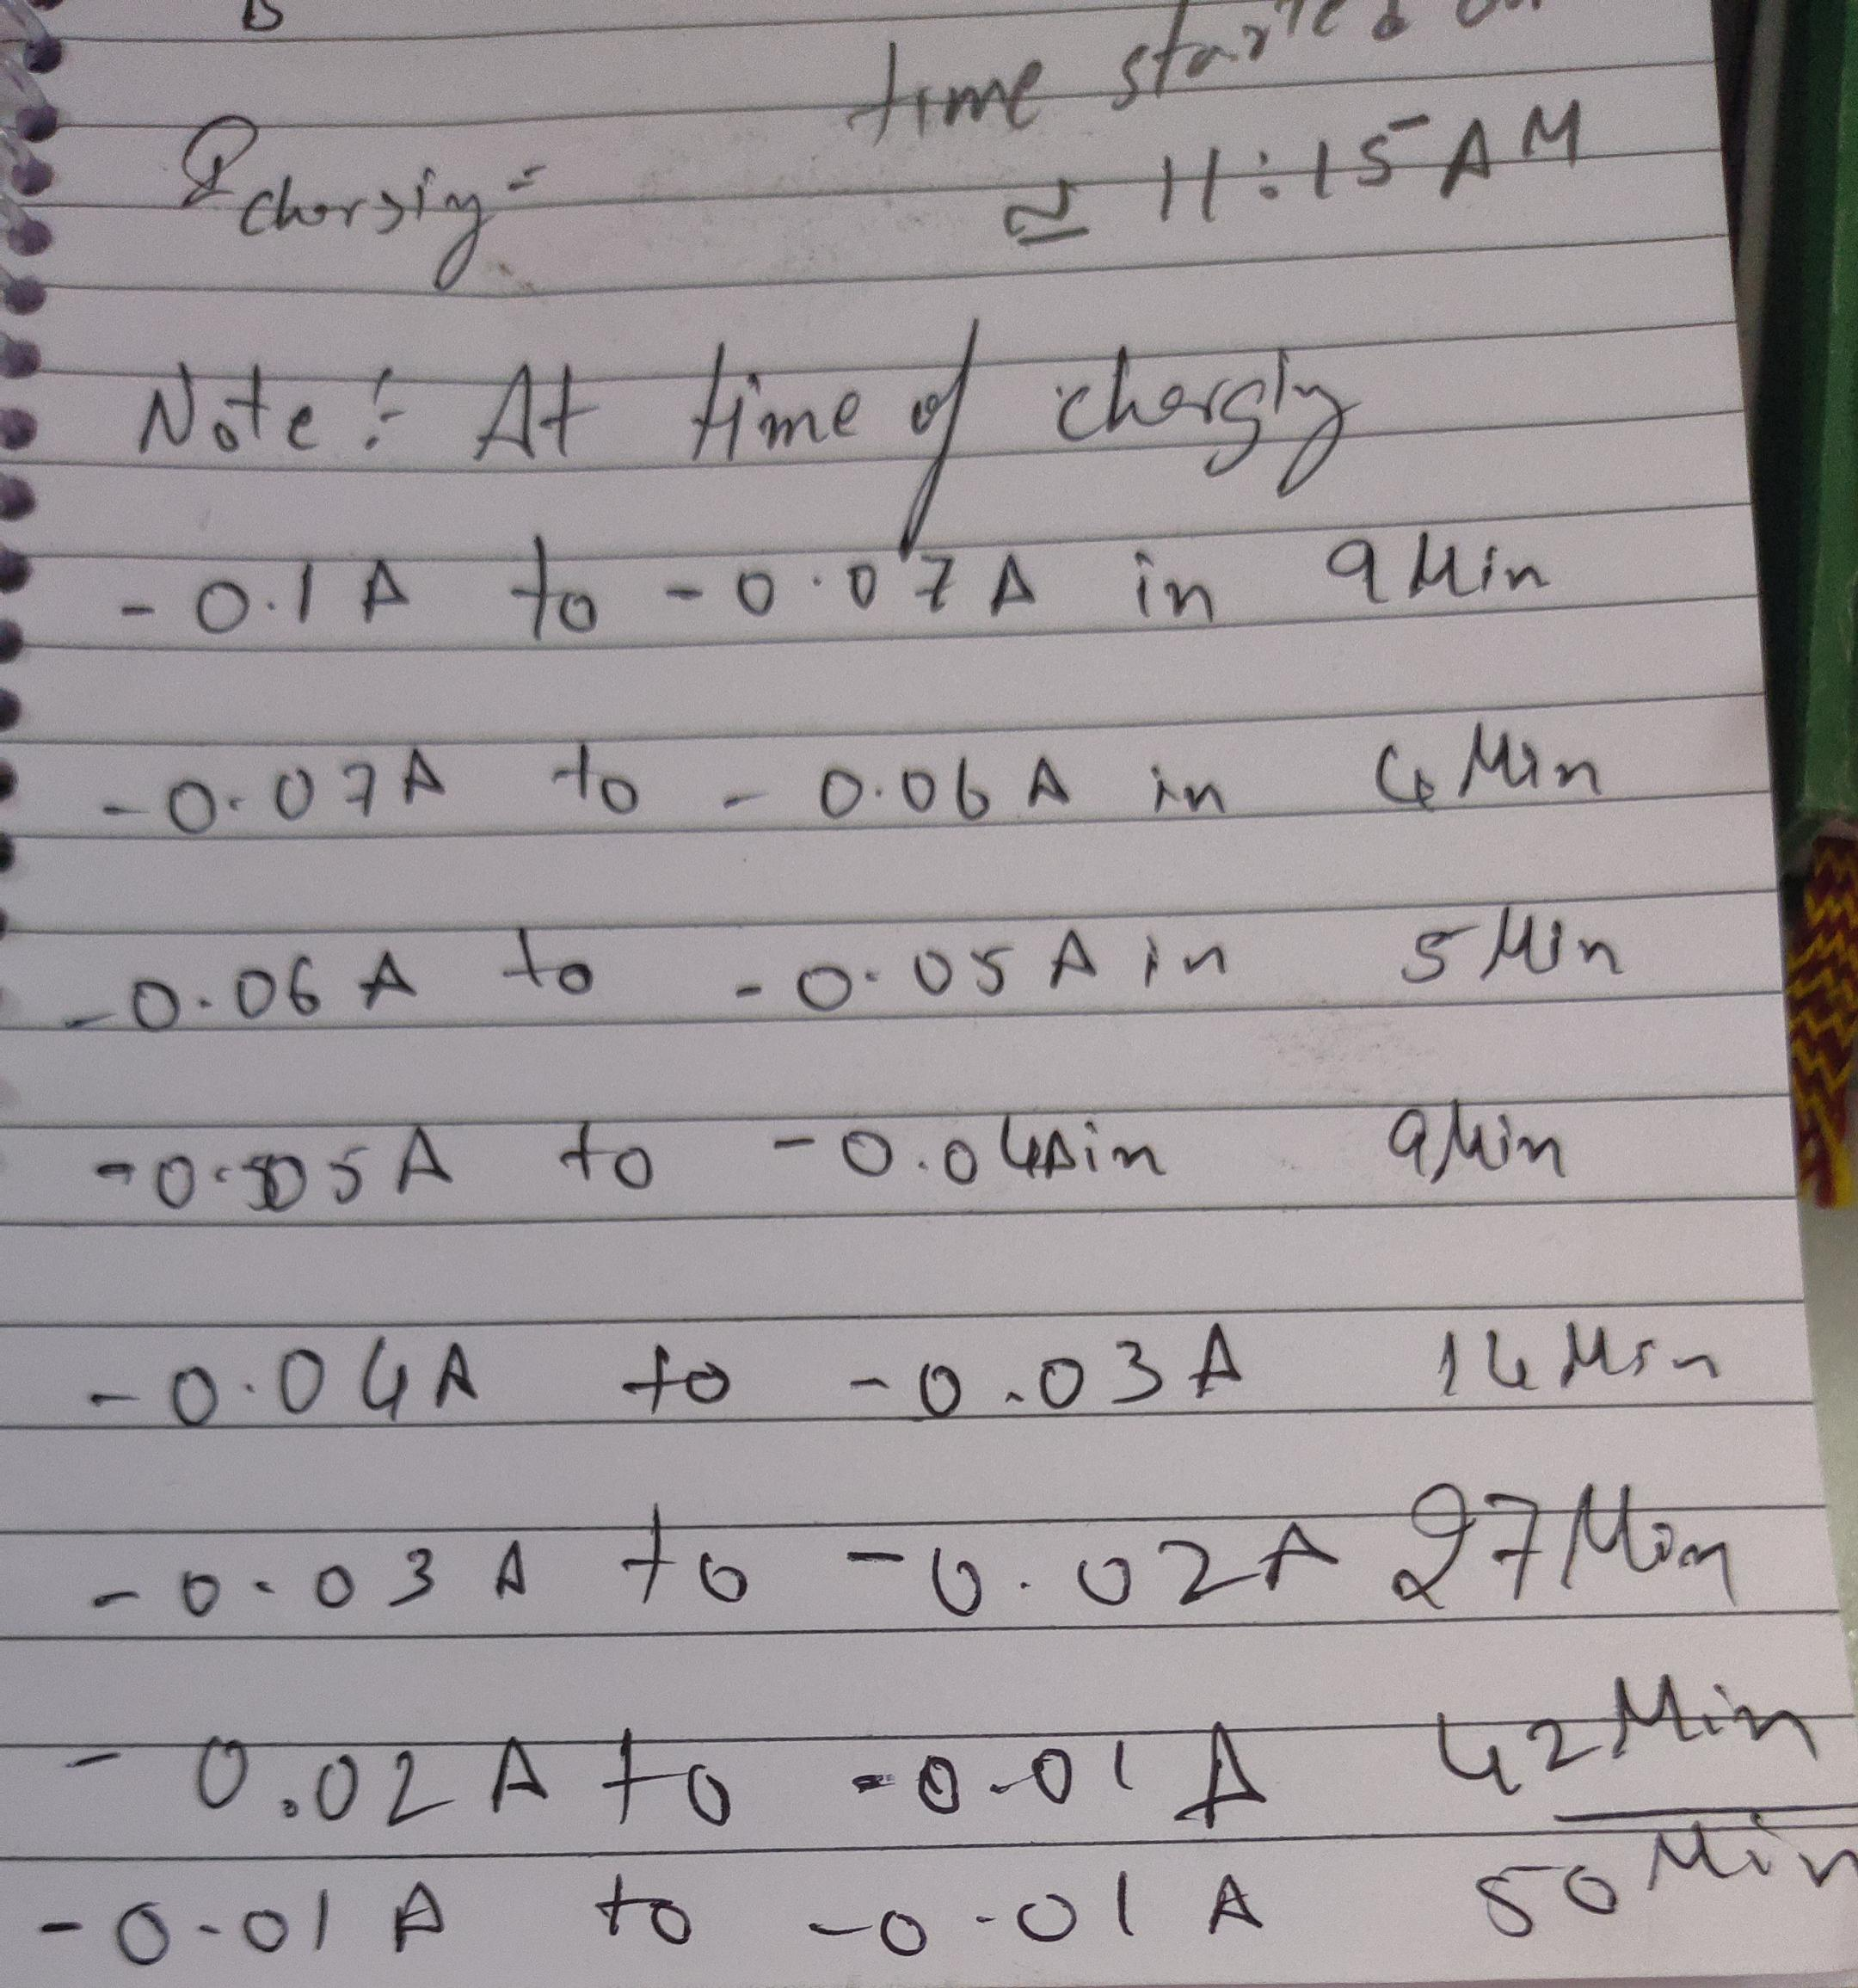 B
time started on
I charging =
≃ 11:15 AM
Note :- At time of charging
- 0.1 A to - 0.07 A in 9 Min
- 0.07A to - 0.06 A in 4 Min
- 0.06 A to - 0.05 A in 5 Min
- 0.05 A to - 0.04A in 9 Min
- 0.04A to - 0.03 A 14 Min
- 0.03 A to - 0.02 A 27 Min
- 0.02 A to - 0.01 A 42 Min
- 0.01 A to - 0.01 A 50 Min